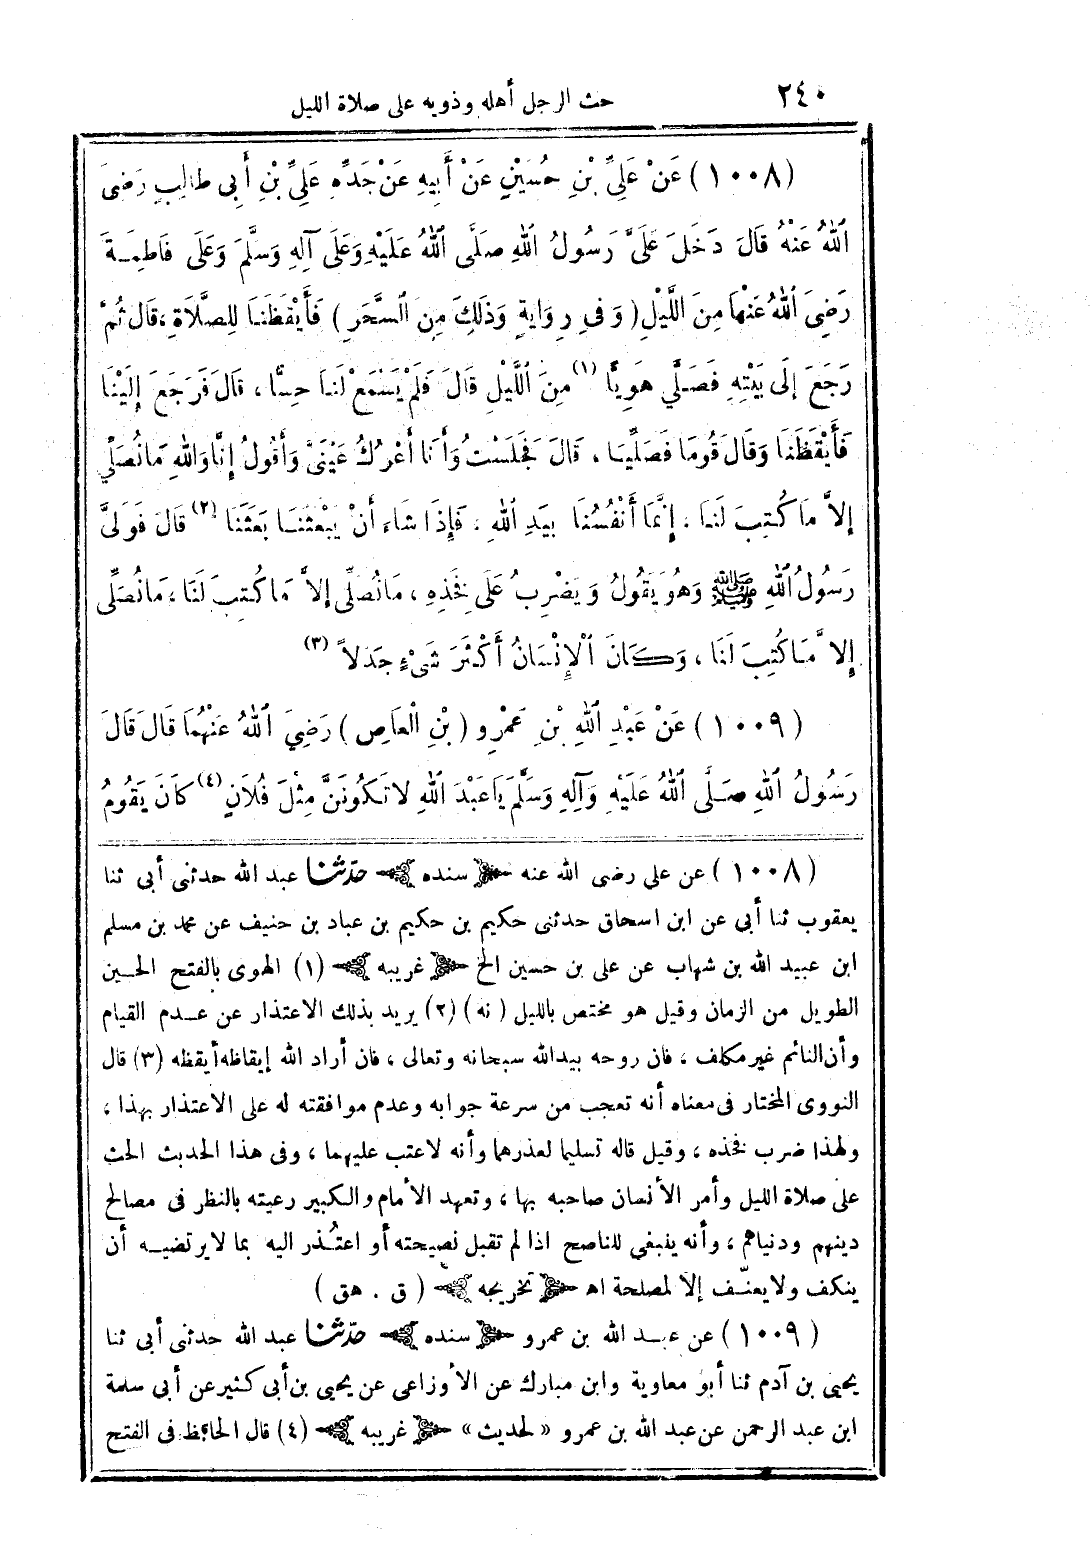 ٢٤٠ حث الرجل أهله وذويه على صلاة الليل
(١٠٠٨) عَنْ عَلِيِّ بْنِ حُسَيْنٍ عَنْ أَبِيهِ عَنْ جَدِّهِ عَلِيِّ بْنِ أَبِى طَالِبٍ رَضِىَ
ٱللهُ عَنْهُ قَالَ دَخَلَ عَلَىَّ رَسُولُ ٱللهِ صَلَّى ٱللهُ عَلَيْهِ وَعَلَى آلِهِ وَسَلَّمَ وَعَلَى فَاطِمَةَ
رَضِىَ ٱللهُ عَنْهَا مِنَ اللَّيْلِ (وَفِى رِوَايَةٍ وَذَلِكَ مِنِ ٱلسَّحَرِ) فَأَيْقَظَنَا لِلصَّلَاةِ، قَالَ ثُمَّ
رَجَعَ إِلَى بَيْتِهِ فَصَلَّي هَوِيًّا (١) مِنَ ٱللَّيْلِ قَالَ فَلَمْ يَسْمَعْ لَنَا حِسًّا ، قَالَ فَرَجَعَ إِلَيْنَا
فَأَيْقَظَنَا وَقَالَ قُومَا فَصَلِّيَا ، قَالَ فَجَلَسْتُ وَأَنَا أَعْرُكُ عَيْنَىَّ وَأَقُولُ إِنَّا وَاللهِ مَانُصَلِّي
إِلاَّ مَا كُتِبَ لَنَا ، إِنَّمَا أَنْفُسُنَا بِيَدِ ٱللهِ ، فَإِذَا شَاءَ أَنْ يَبْعَثَنَا بَعَثَنَا (٢) قَالَ فَوَلىَّ
رَسُولُ ٱللهِ ﷺ وَهُوَ يَقُولُ وَيَضْرِبُ عَلَى فَخِذِهِ ، مَانُصَلِّى إِلاَّ مَا كُتِبَ لَنَا ، مَانُصَلِّى
إِلاَّ مَا كُتِبَ لَنَا ، وَكَانَ ٱلْإِنْسَانُ أَكْثَرَ شَىْءٍ جَدَلاً (٣)
(١٠٠٩) عَنْ عَبْدِ ٱللهِ بْنِ عَمْرِو (بْنِ ٱلْعَاصِ) رَضِيَ ٱللهُ عَنْهُمَا قَالَ قَالَ
رَسُولُ ٱللهِ صَلَّى ٱللهُ عَلَيْهِ وَآلِهِ وَسَلَّمَ يَاعَبْدَ ٱللهِ لاَ تَكُونَنَّ مِثْلَ فُلاَنٍ (٤) كَانَ يَقُومُ
(١٠٠٨) عن على رضى الله عنه سنده حدّثنا عبد الله حدثنى أبى ثنا
يعقوب ثنا أبي عن ابن اسحاق حدثنى حكيم بن حكيم بن عباد بن حنيف عن محمد بن مسلم
ابن عبيد الله بن شهاب عن على بن حسين الخ غريبه (١) الهوى بالفتح الحين
الطويل من الزمان وقيل هو مختص بالليل (نه) (٢) يريد بذلك الاعتذار عن عدم القيام
وأن النائم غير مكلف ، فان روحه بيد الله سبحانه وتعالى ، فان أراد الله إيقاظه أيقظه (٣) قال
النووى المختار فى معناه أنه تعجب من سرعة جوابه وعدم موافقته له على الاعتذار بهذا ،
ولهذا ضرب فخذه ، وقيل قاله تسليما لعذرهما وأنه لا عتب عليهما ، وفى هذا الحديث الحث
على صلاة الليل وأمر الأنسان صاحبه بها ، وتعهد الأمام والكبير رعيته بالنظر فى مصالح
دينهم ودنياهم ، وأنه ينبغي للناصح اذا لم تقبل نصيحته أو اعتُذر اليه بما لا يرتضيه أن
ينكف ولا يعنّف إلا لمصلحة اهـ تخريجه (ق . هق)
(١٠٠٩) عن عبد الله بن عمرو سنده حدّثنا عبد الله حدثنى أبى ثنا
يحيى بن آدم ثنا أبو معاوية وابن مبارك عن الأوزاعى عن يحيى بن أبى كثير عن أبى سلمة
ابن عبد الرحمن عن عبد الله بن عمرو «لحديث» غريبه (٤) قال الحافظ فى الفتح